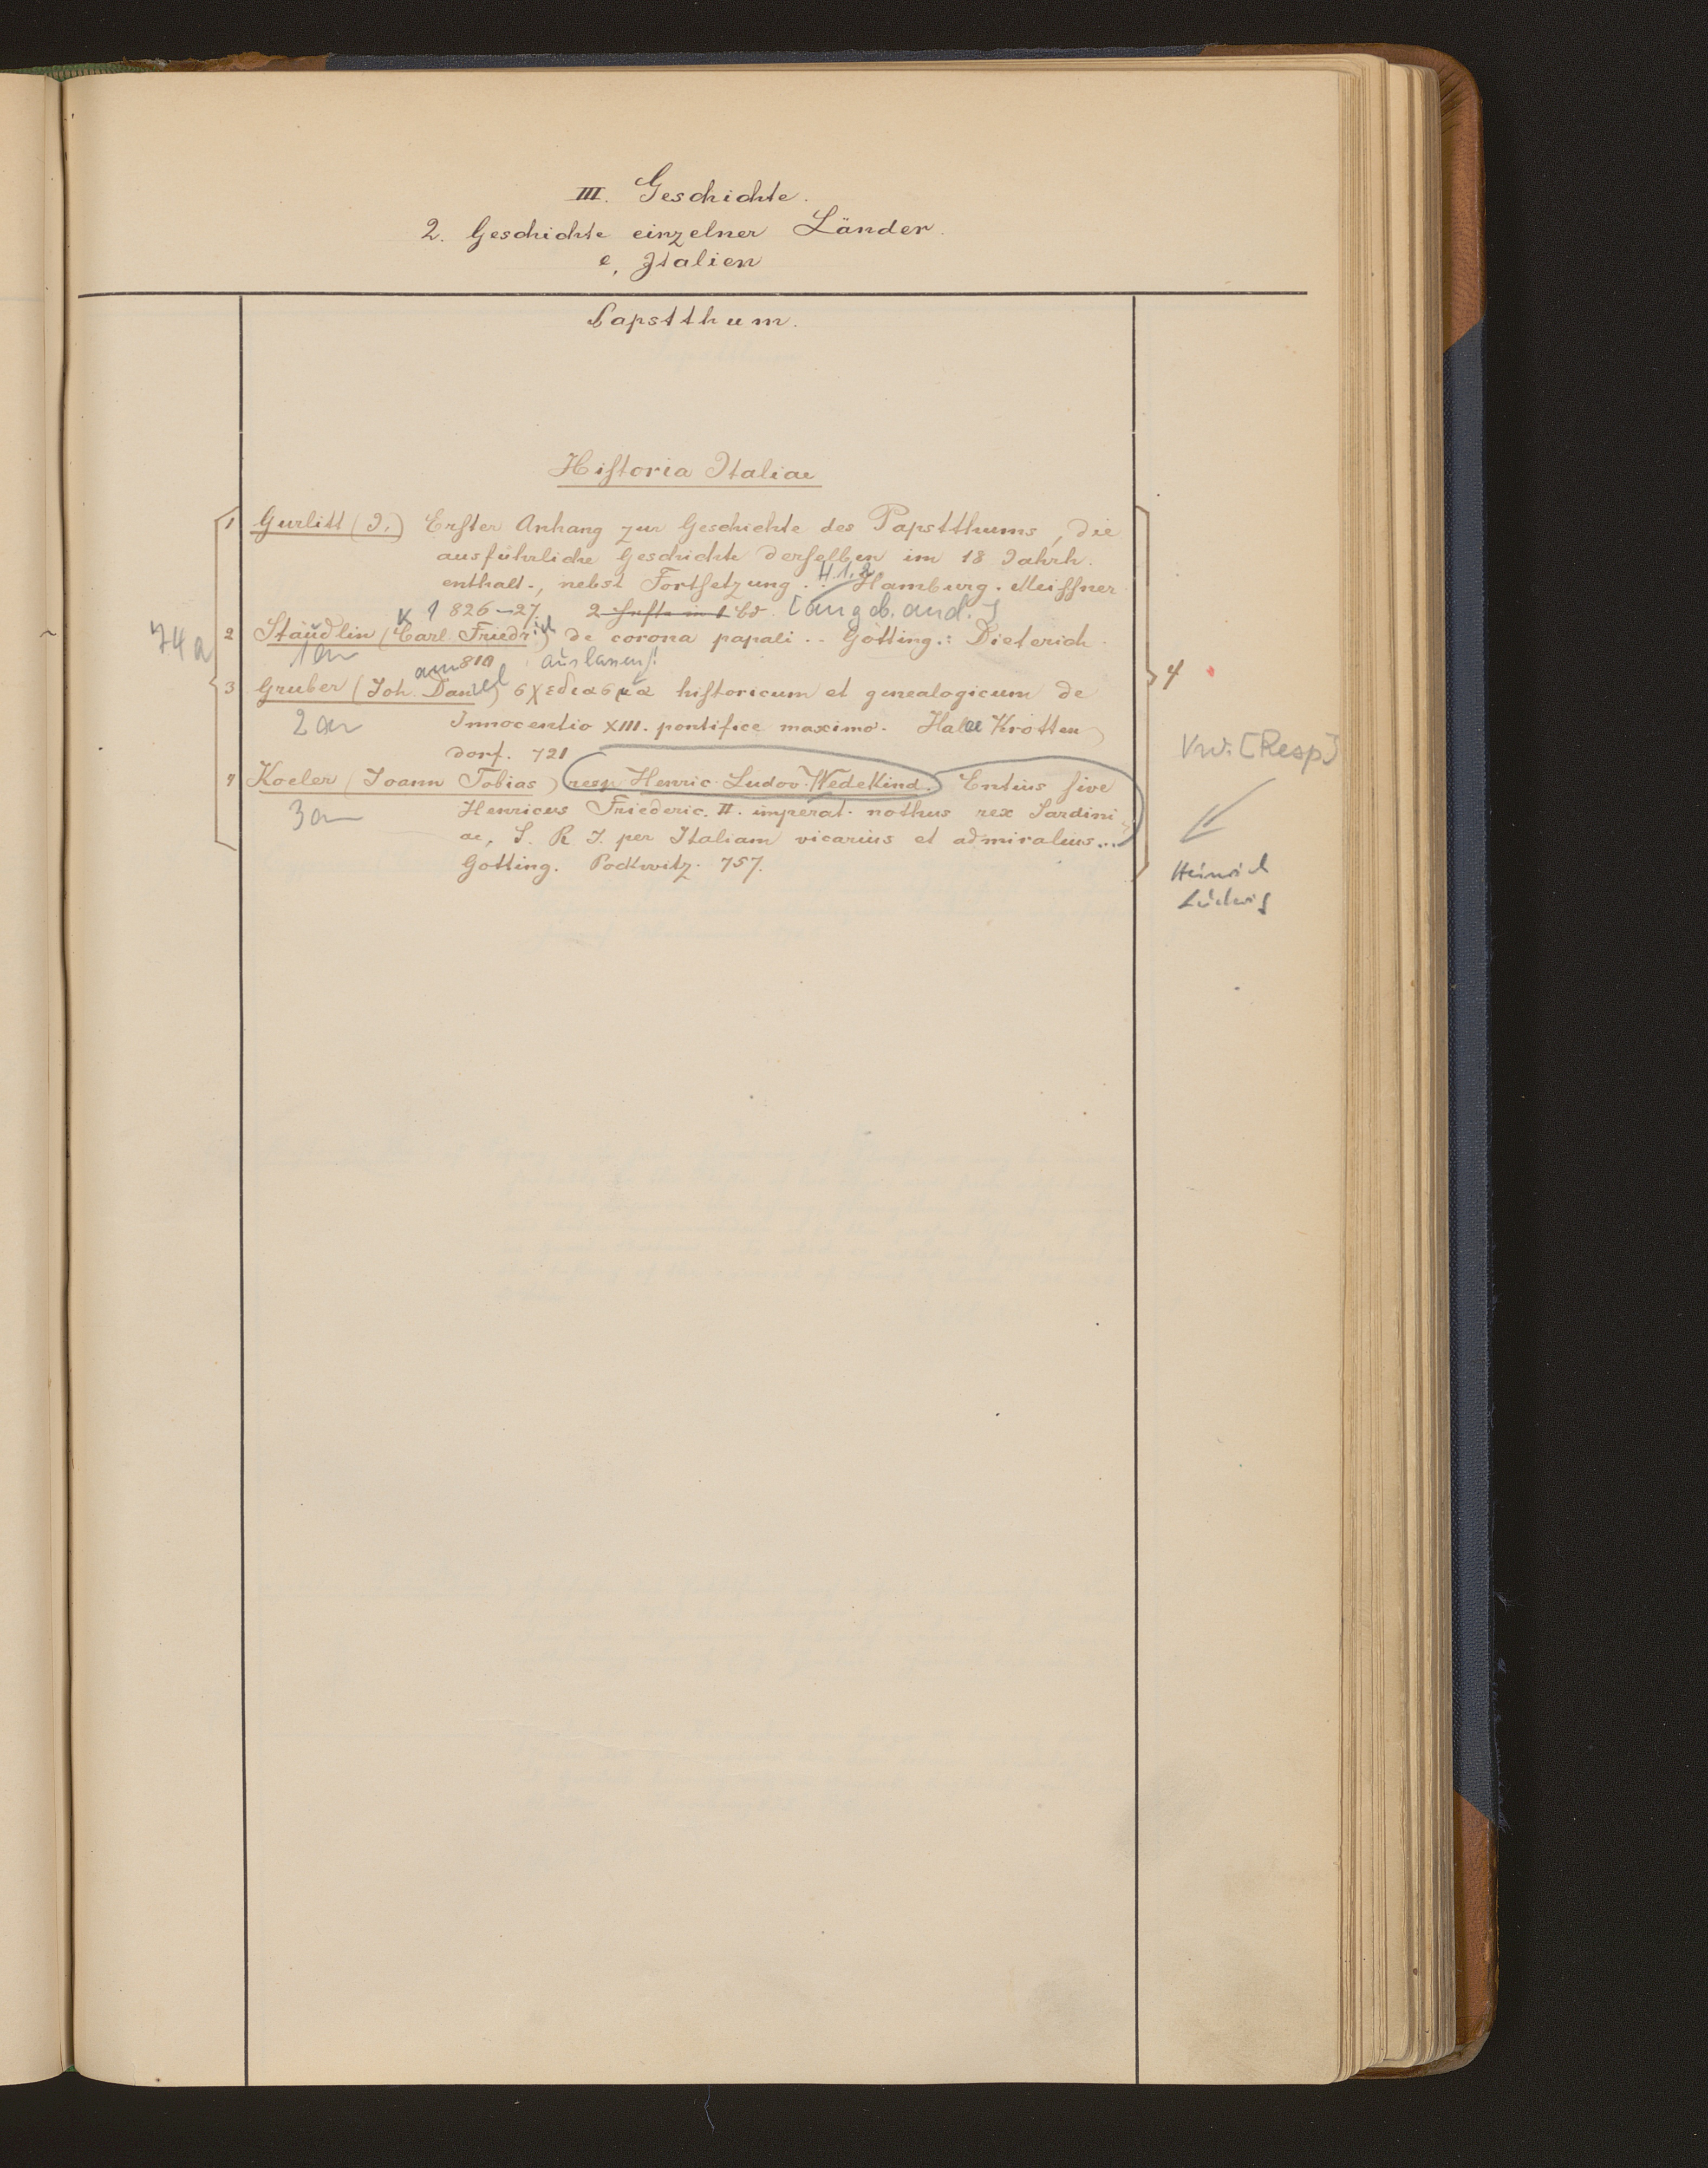 III. Geschichte.
2. Geschichte einzelner Länder.
e, Italien
Papstthum.
Historia Italiae
1 Gurlitt (J.) Erster Anhang zur Geschichte des Papstthums, die
ausführliche Geschichte derselben im 18 Jahrh.
enthalt., nebst Fortsetzung .. H.1.2. Hamburg. Meissner
1826-27. 2 Hefte in 1 Bd. [angeb. and.]
74a
2 Stäudlin (Carl Friedrich) de corona papali .. Götting.: Dieterich.
K
1 an 810
3 Gruber (Joh. Daniel) σχεδιασμα historicum et genealogicum de
2 an Innocentio XIII. pontifice maximo. Halae Krotten
dorf. 721
4
4 Koeler (Joann Tobias) resp Henric. Ludov. Wedekind. Entius sive
Vw. [Resp]
3 an Henricus Friederic. II. imperat. nothus rex Sardini
ae, S. R. I. per Italiam vicarius et admiralius...
Gotting. Pockwitz. 757.
Heinrich
Ludwig